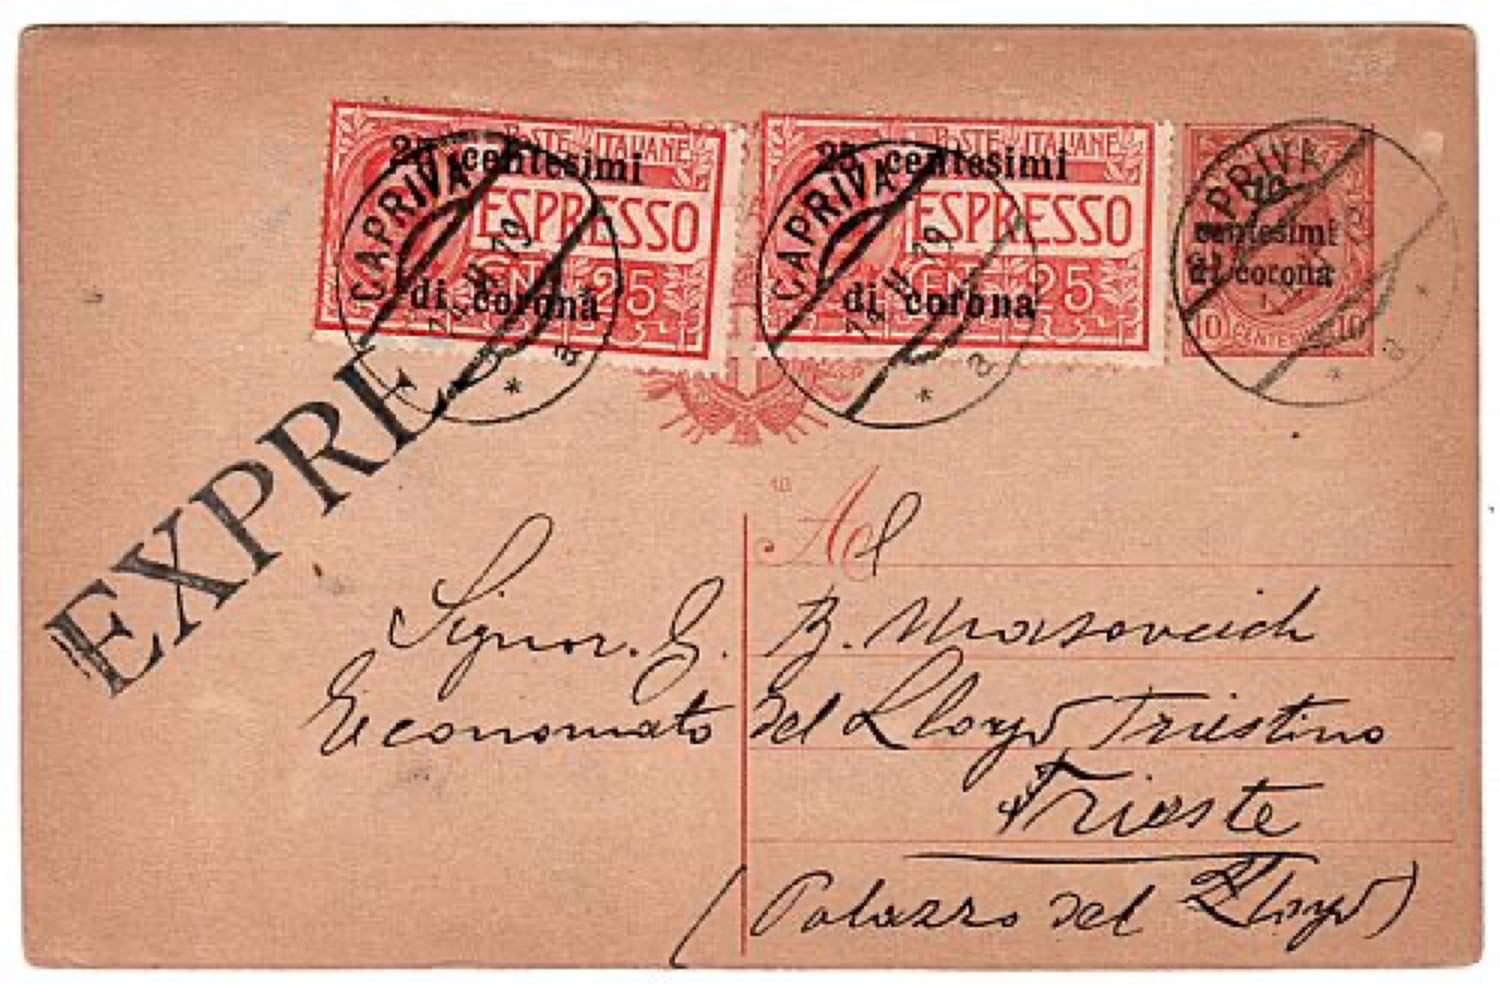 POSTE ITALIANE
25 centesimi
ESPRESSO
CENT. 25
di corona
CAPRIVA
19
a
POSTE ITALIANE
25 centesimi
ESPRESSO
CENT. 25
di corona
CAPRIVA
19
a
10
centesimi
di corona
10 CENTESIMI 10
CAPRIVA
a
EXPRE
18
Al
Signor. G. B.
Economato del Lloyd Triestino
Trieste
(Palazzo del Lloyd)